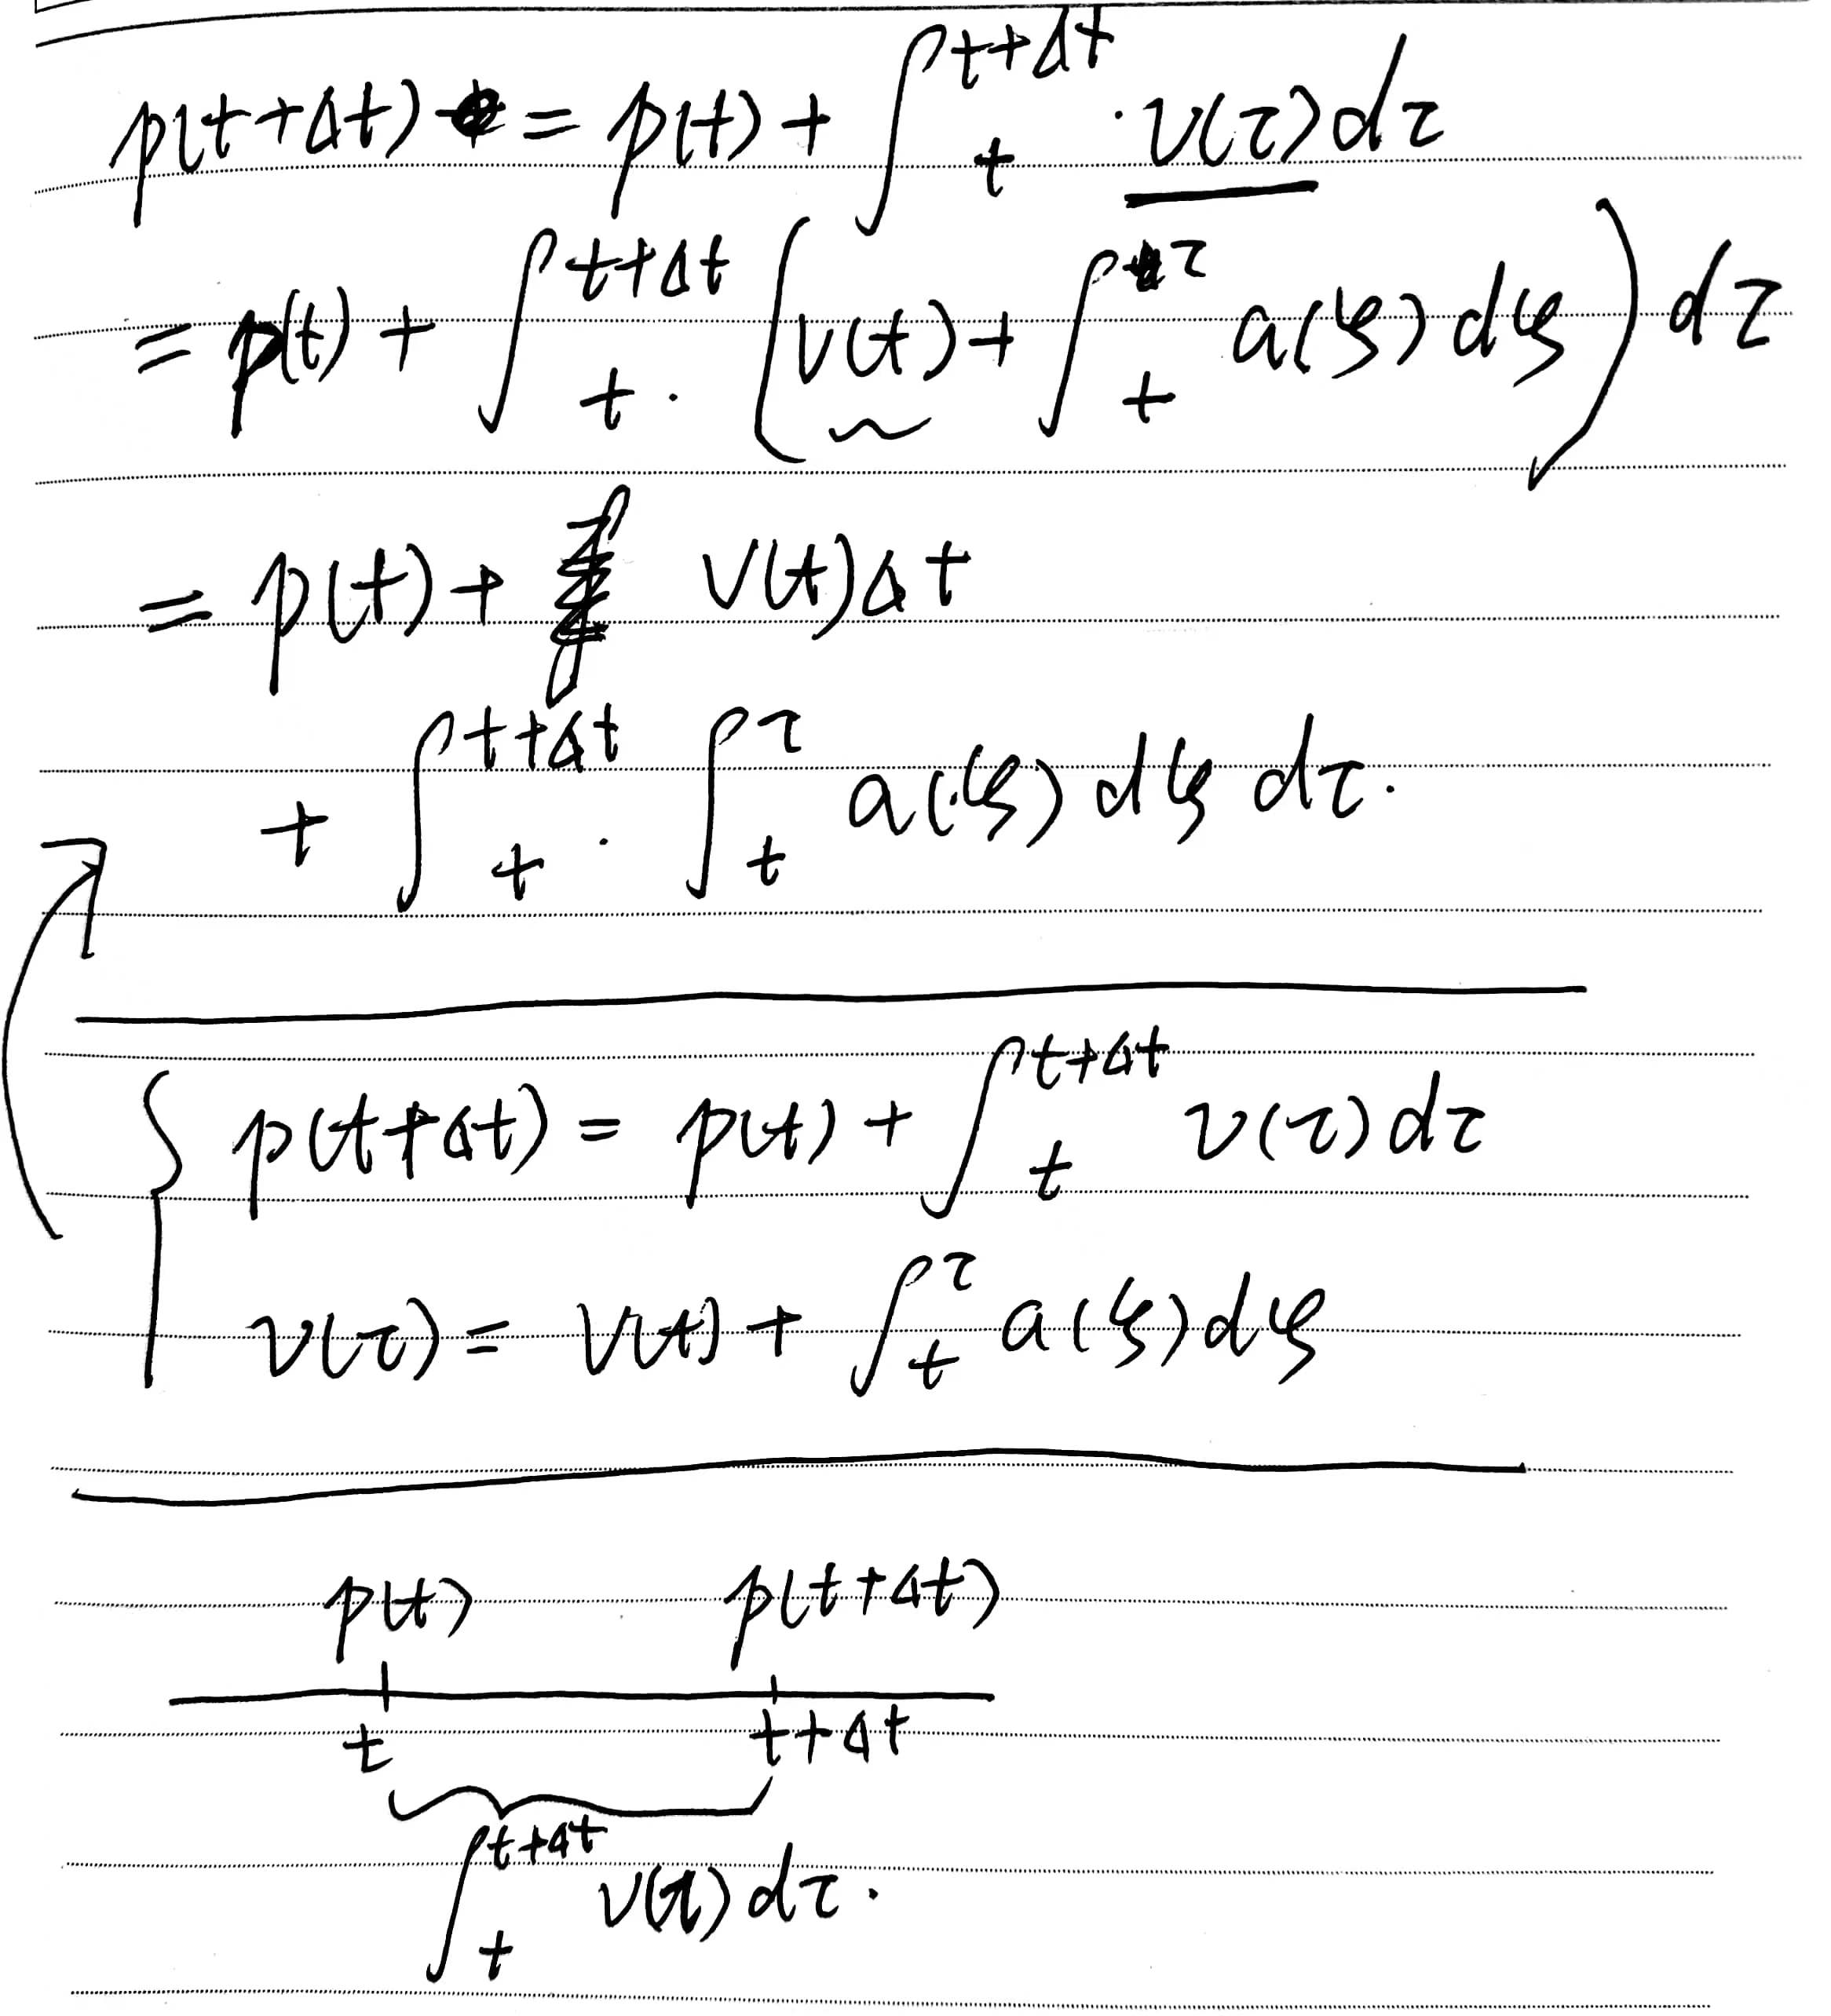 p(t+Δt) = p(t) + ∫_t^{t+Δt} v(τ) dτ
= p(t) + ∫_t^{t+Δt} (v(t) + ∫_t^τ a(ξ) dξ) dτ
= p(t) + v(t)Δt
+ ∫_t^{t+Δt} ∫_t^τ a(ξ) dξ dτ.
p(t+Δt) = p(t) + ∫_t^{t+Δt} v(τ) dτ
v(τ) = v(t) + ∫_t^τ a(ξ) dξ
p(t) p(t+Δt)
t t+Δt
∫_t^{t+Δt} v(τ) dτ.